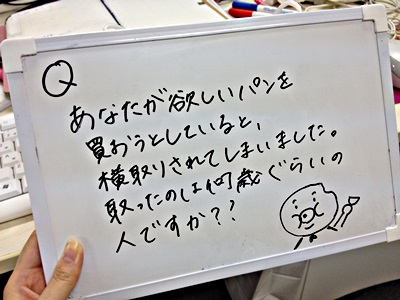 Q
あなたが欲しいパンを
買おうとしていると、
横取りされてしまいました。
取ったのは何歳ぐらいの
人ですか??